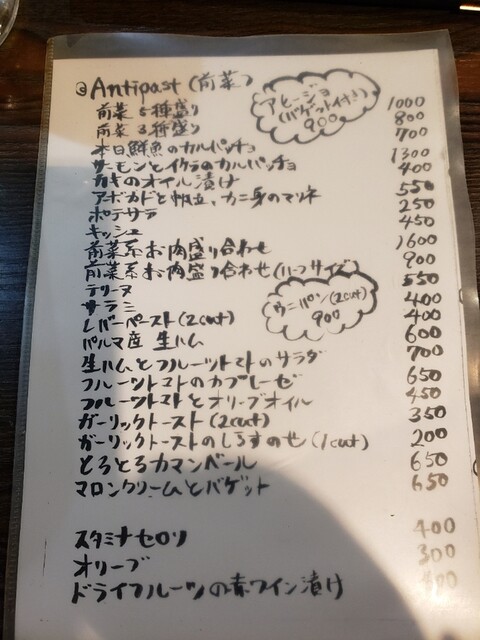 ◎Antipast (前菜)
アヒージョ
(バゲット付き)
900
前菜 5種盛り 1000
前菜 3種盛り 800
本日鮮魚のカルパッチョ 700
サーモンとイクラのカルパッチョ 1300
カキのオイル漬け 400
アボカドと帆立、カニ身のマリネ 550
ポテサラ 250
キッシュ 450
前菜系お肉盛り合わせ 1600
前菜系お肉盛り合わせ(ハーフサイズ) 900
テリーヌ 550
サラミ 400
ウニパン(2cut)
900
レバーペースト(2cut) 400
パルマ産 生ハム 600
生ハムとフルーツトマトのサラダ 700
フルーツトマトのカプレーゼ 650
フルーツトマトとオリーブオイル 450
ガーリックトースト(2cut) 350
ガーリックトーストのしらすのせ(1cut) 200
とろとろカマンベール 650
マロンクリームとバゲット 650
スタミナセロリ 400
オリーブ 300
ドライフルーツの赤ワイン漬け